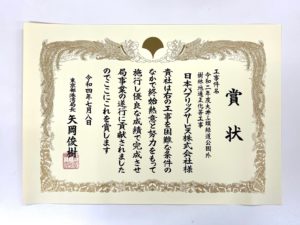 賞状
工事件名
令和二年度大井ふ頭緑道公園外
樹林地適正化等工事
日本パブリックサービス株式会社様
貴社は右の工事を困難な条件の
なかで終始熱意と努力をもって
施行し優良な成績で完成させ
局事業の遂行に貢献されました
のでここにこれを賞します
令和四年七月八日
東京都港湾局長
矢岡俊樹